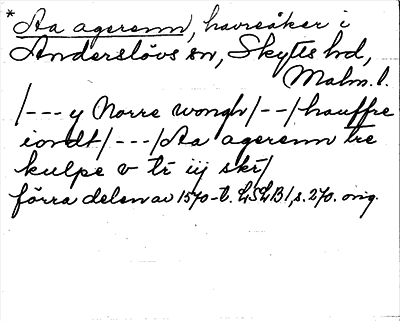 * Aa agerenn, havreåker i
Anderslövs sn, Skytts hd,
Malm. l.
/--- y Norre wongh/--/hauffre
iordt/---/Aa agerenn tre
kulpe v tr iij skr/
förra delen av 1570-t. LSLB1, s. 270. orig.